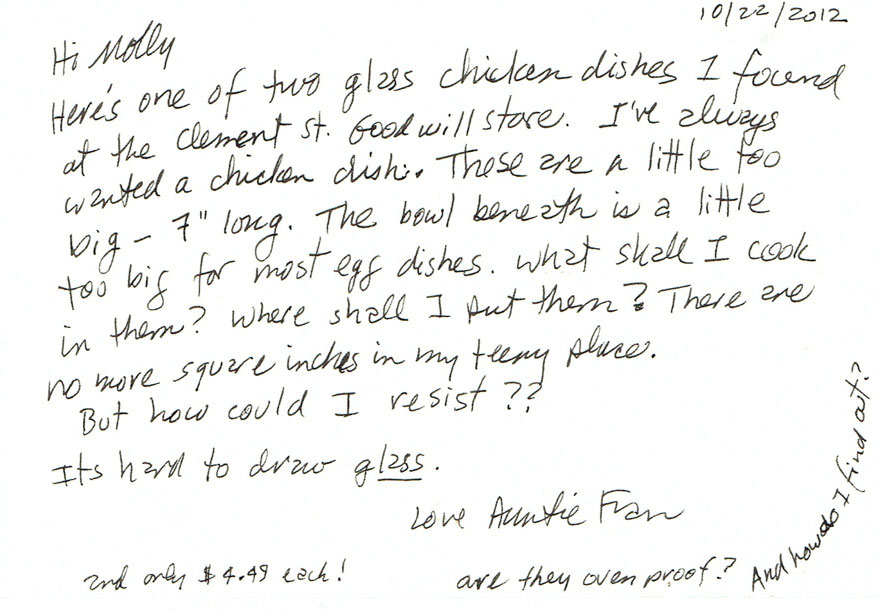 10/22/2012
Hi Molly
Here's one of two glass chicken dishes I found
at the Clement St. Goodwill store. I've always
wanted a chicken dish. These are a little too
big - 7" long. The bowl beneath is a little
too big for most egg dishes. What shall I cook
in them? Where shall I put them? There are
no more square inches in my teeny place.
But how could I resist??
Its hard to draw glass.
Love Auntie Fran
and only $4.49 each!
are they oven proof?
And how do I find out?